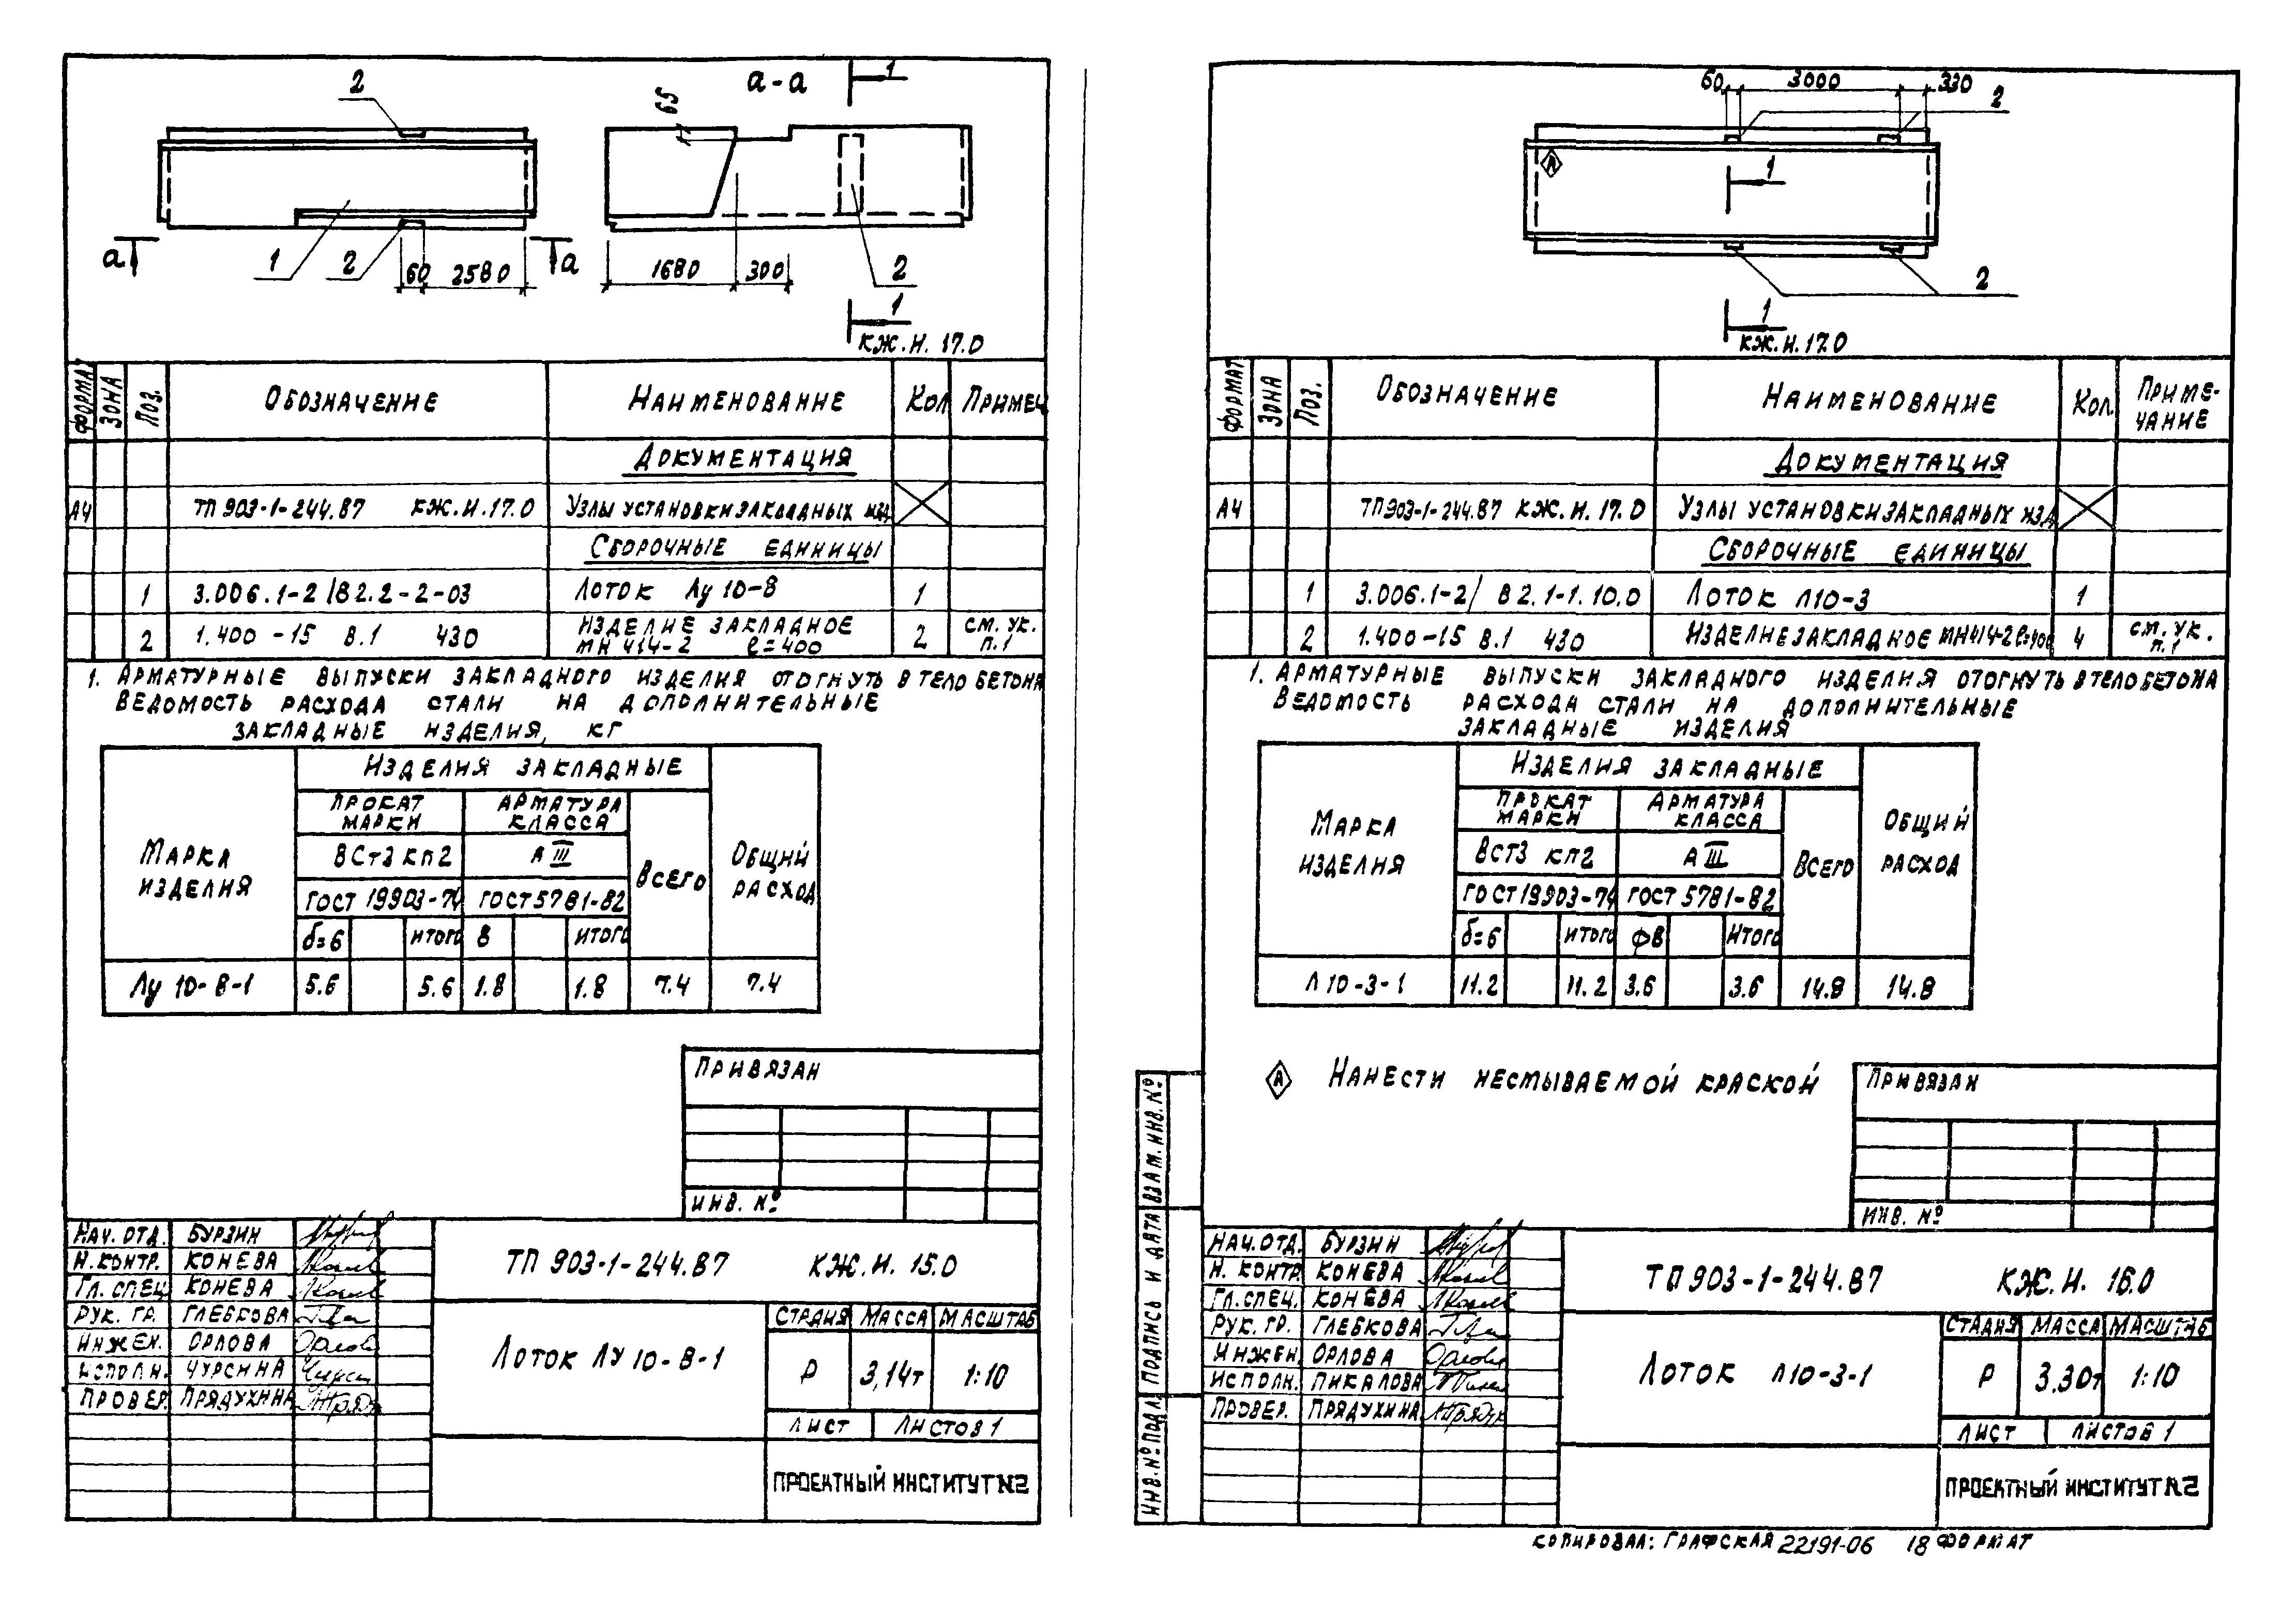 2
а-а
1
65
а
1
2
60
2580
а
1680
300
2
1
КЖ.И. 17.0
ФОРМАТ ЗОНА ПОЗ. ОБОЗНАЧЕНИЕ НАИМЕНОВАНИЕ КОЛ ПРИМЕЧ
ДОКУМЕНТАЦИЯ
А4 ТП 903-1-244.87 КЖ.И.17.0 УЗЛЫ УСТАНОВКИ ЗАКЛАДНЫХ ИЗД.
СБОРОЧНЫЕ ЕДИНИЦЫ
1 3.006.1-2/82.2-2-03 ЛОТОК Лу 10-8 1
2 1.400-15 В.1 430 ИЗДЕЛИЕ ЗАКЛАДНОЕ МН 414-2 ℓ=400 2 СМ. УК. П.1
1. АРМАТУРНЫЕ ВЫПУСКИ ЗАКЛАДНОГО ИЗДЕЛИЯ ОТОГНУТЬ В ТЕЛО БЕТОНА
ВЕДОМОСТЬ РАСХОДА СТАЛИ НА ДОПОЛНИТЕЛЬНЫЕ
ЗАКЛАДНЫЕ ИЗДЕЛИЯ, КГ
МАРКА ИЗДЕЛИЯ
ИЗДЕЛИЯ ЗАКЛАДНЫЕ
ПРОКАТ МАРКИ
АРМАТУРА КЛАССА
ВСт3 кп2
А III
ГОСТ 19903-74
ГОСТ 5781-82
ВСЕГО
ОБЩИЙ РАСХОД
δ=6 ИТОГО 8 ИТОГО
Лу 10-8-1 5.6 5.6 1.8 1.8 7.4 7.4
ПРИВЯЗАН
ИНВ. №
НАЧ. ОТД. БУРЗИН
Н. КОНТР. КОНЕВА
ГЛ. СПЕЦ. КОНЕВА
РУК. ГР. ГЛЕБКОВА
ИНЖЕН. ОРЛОВА
ИСПОЛН. ЧУРСИНА
ПРОВЕР. ПРЯДУХИНА
ТП 903-1-244.87 КЖ.И. 15.0
ЛОТОК ЛУ 10-8-1
СТАДИЯ МАССА МАСШТАБ
Р 3,14т 1:10
ЛИСТ ЛИСТОВ 1
ПРОЕКТНЫЙ ИНСТИТУТ №2
60
3000
330
2
А
1
2
1
КЖ.И.17.0
ФОРМАТ ЗОНА ПОЗ. ОБОЗНАЧЕНИЕ НАИМЕНОВАНИЕ КОЛ. ПРИМЕ-ЧАНИЕ
ДОКУМЕНТАЦИЯ
А4 ТП903-1-244.87 КЖ.И.17.0 УЗЛЫ УСТАНОВКИ ЗАКЛАДНЫХ ИЗД
СБОРОЧНЫЕ ЕДИНИЦЫ
1 3.006.1-2/82.1-1.10.0 ЛОТОК Л10-3 1
2 1.400-15 В.1 430 ИЗДЕЛИЕ ЗАКЛАДНОЕ МН414-2 ℓ=400 4 СМ. УК. П.1
1. АРМАТУРНЫЕ ВЫПУСКИ ЗАКЛАДНОГО ИЗДЕЛИЯ ОТОГНУТЬ В ТЕЛО БЕТОНА
ВЕДОМОСТЬ РАСХОДА СТАЛИ НА ДОПОЛНИТЕЛЬНЫЕ
ЗАКЛАДНЫЕ ИЗДЕЛИЯ
МАРКА ИЗДЕЛИЯ
ИЗДЕЛИЯ ЗАКЛАДНЫЕ
ПРОКАТ МАРКИ
АРМАТУРА КЛАССА
ВСТ3 кп2
А III
ГОСТ 19903-74
ГОСТ 5781-82
ВСЕГО
ОБЩИЙ РАСХОД
δ=6 ИТОГО Ф8 ИТОГО
Л 10-3-1 11.2 11.2 3.6 3.6 14.8 14.8
А НАНЕСТИ НЕСМЫВАЕМОЙ КРАСКОЙ
ПРИВЯЗАН
ИНВ. №
ВЗАМ. ИНВ. №
ПОДПИСЬ И ДАТА
ИНВ. № ПОДЛ.
НАЧ. ОТД. БУРЗИН
Н. КОНТР. КОНЕВА
ГЛ. СПЕЦ. КОНЕВА
РУК. ГР. ГЛЕБКОВА
ИНЖЕН. ОРЛОВА
ИСПОЛН. ПИКАЛОВА
ПРОВЕР. ПРЯДУХИНА
ТП 903-1-244.87 КЖ.И. 16.0
ЛОТОК Л10-3-1
СТАДИЯ МАССА МАСШТАБ
Р 3.30т 1:10
ЛИСТ ЛИСТОВ 1
ПРОЕКТНЫЙ ИНСТИТУТ №2
КОПИРОВАЛ: ГРАФСКАЯ 22191-06 18 ФОРМАТ